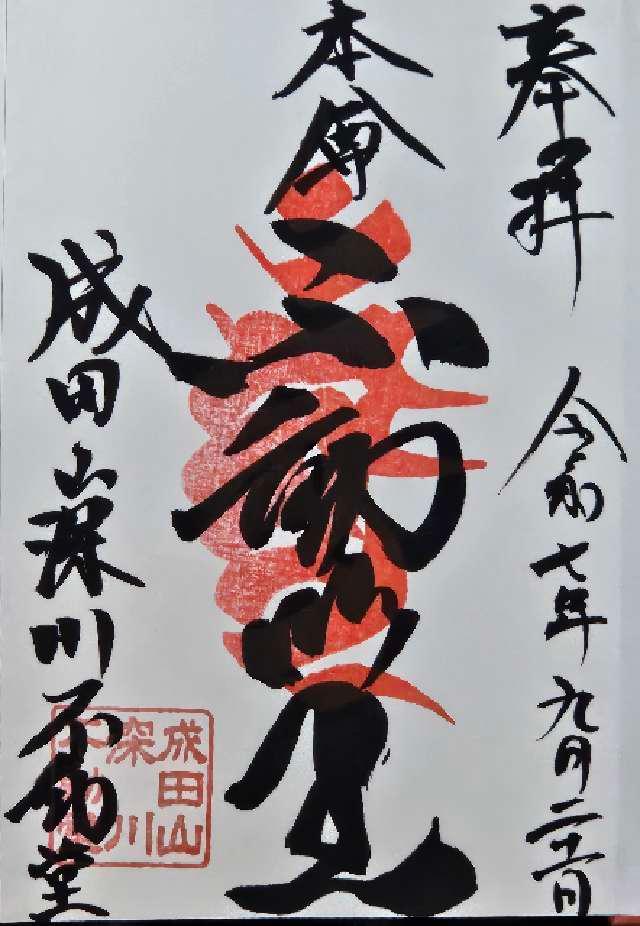 奉拝
令和七年九月二十一日
本尊
不動明王
成田山深川不動堂
成田山
深川
不動堂